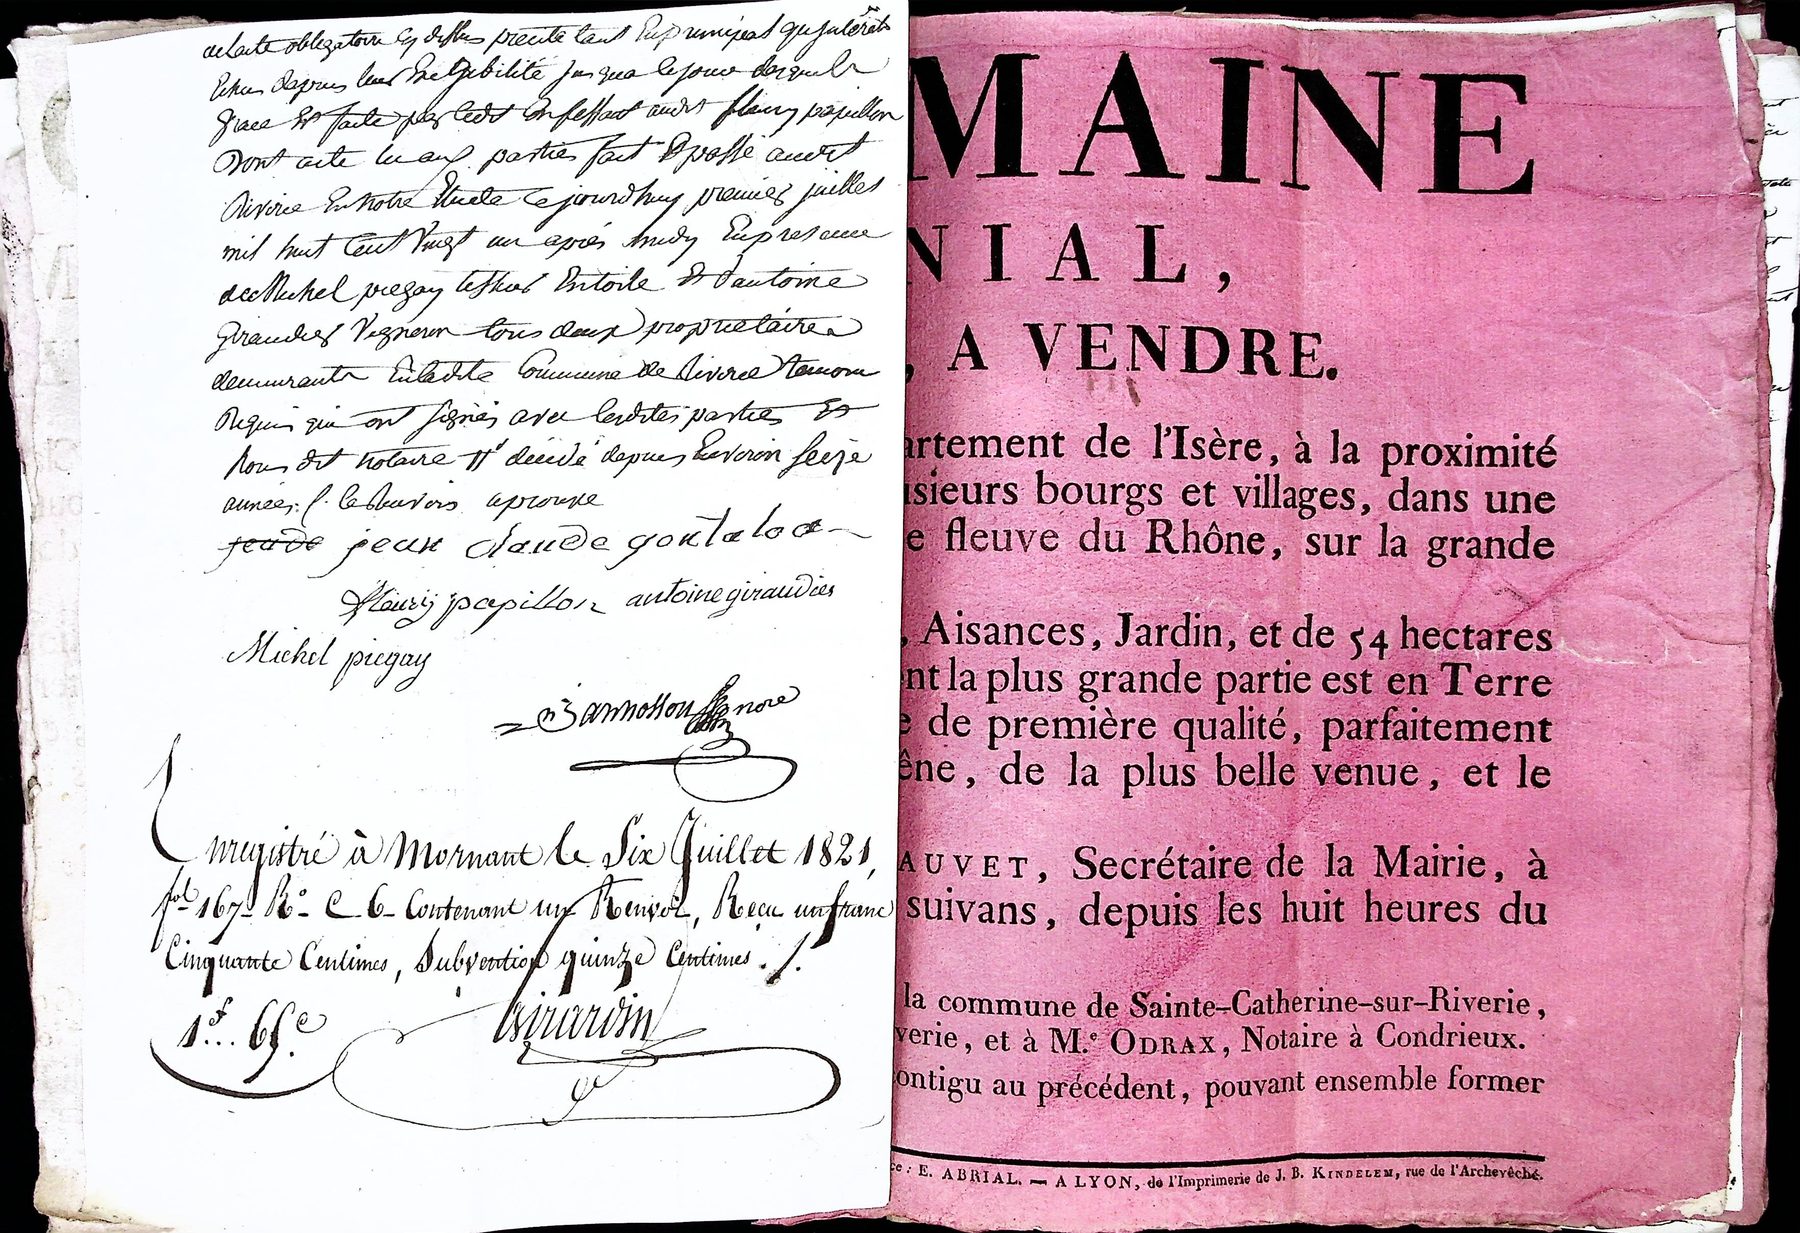 delacte obligatoire cy dessus precite tant En principal qu'interêts
Echus depuis leur Exigibilité jusqua ce jour desquels
grace Est faite par ledit confessant audit fleury papillon
Dont acte lu aux parties fait Et passé audit
Riverie En notre Etude ce jourdhuy premier juillet
mil huit cent vingt un après midy En presence
de Michel piegay tessieur En toile Et dantoine
Giraudier Vigneron tous deux propriétaires
demeurants En ladite Commune de Riverie temoins
Requis qui ont signés avec lesdites parties Et
Nous dit notaire # décédé depuis Environ seize
années. le Renvois aprouvé
jeade jean claude gontaloa
fleurij papillon antoine giraudier
Michel piegay
Bannosson nore
Enregistré à Mornant le Six Juillet 1821,
fol 167 Ro C 6 Contenant un Renvoi, Reçu un franc
Cinquante Centimes, Subvention quinze Centimes ./.
1f... 65c
Girardin
MAINE
NIAL,
, A VENDRE.
artement de l'Isère, à la proximité
usieurs bourgs et villages, dans une
e fleuve du Rhône, sur la grande
, Aisances, Jardin, et de 54 hectares
nt la plus grande partie est en Terre
e de première qualité, parfaitement
êne, de la plus belle venue, et le
AUVET, Secrétaire de la Mairie, à
suivans, depuis les huit heures du
la commune de Sainte-Catherine-sur-Riverie,
verie, et à M.e ODRAX, Notaire à Condrieux.
ontigu au précédent, pouvant ensemble former
ce : E. ABRIAL. — A LYON, de l'Imprimerie de J. B. KINDELEM, rue de l'Archevêché.